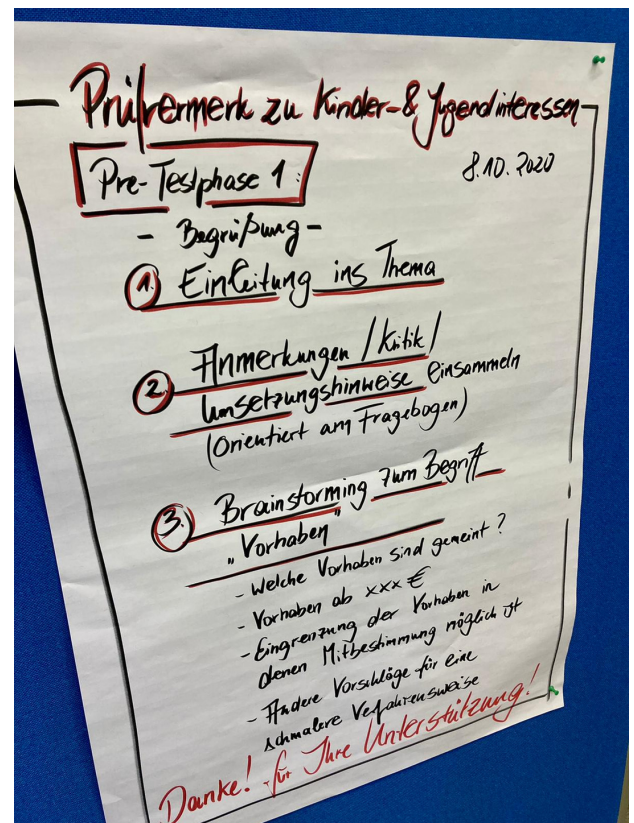 Prüfvermerk zu Kinder-& Jugendinteressen
Pre-Testphase 1:
8.10.2020
- Begrüßung -
1. Einleitung ins Thema
2. Anmerkungen / Kritik /
Umsetzungshinweise einsammeln
(Orientiert am Fragebogen)
3. Brainstorming zum Begriff
"Vorhaben"
- Welche Vorhaben sind gemeint?
- Vorhaben ab xxx €
- Eingrenzung der Vorhaben in
denen Mitbestimmung möglich ist
- Andere Vorschläge für eine
schmalere Verfahrensweise
Danke! für Ihre Unterstützung!